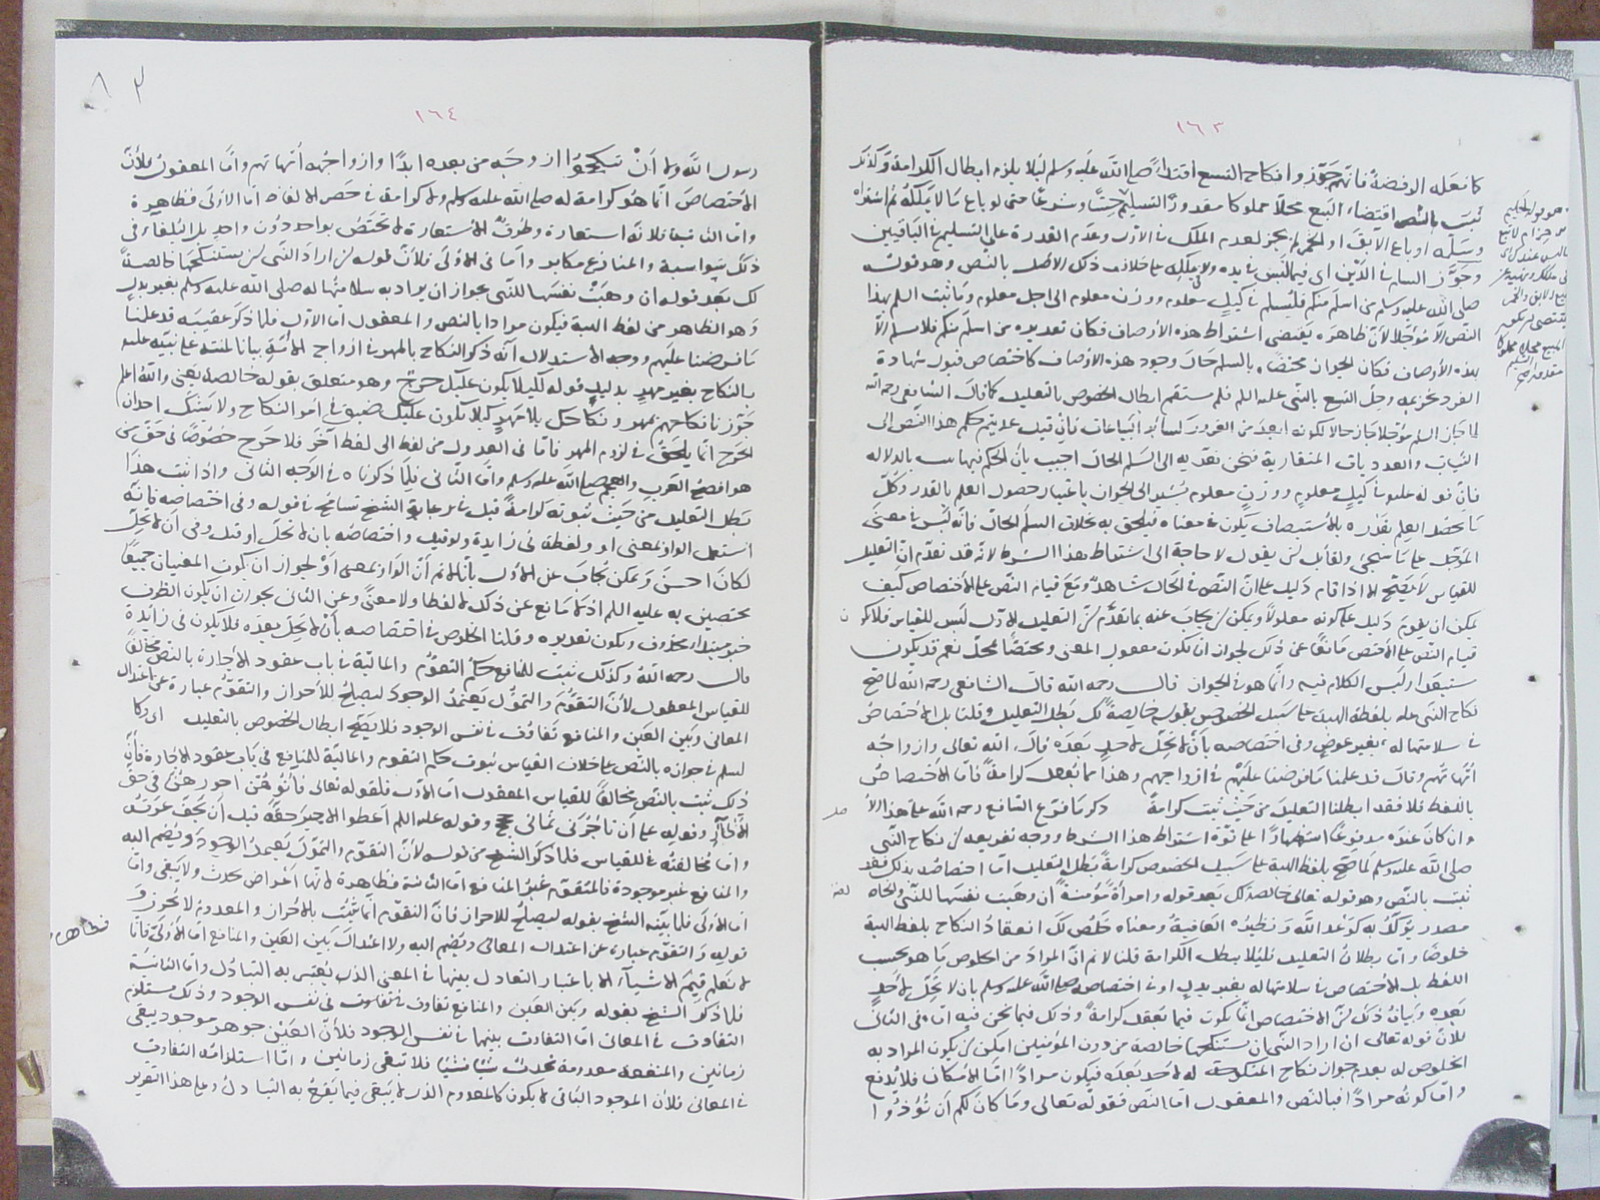 ١٦٣
كما نعله الرفضة فانهم جوزوا نكاح التسع اقتداء صلى الله عليه وسلم لئلا يلزم ابطال الكرامة وكذلك
ثبت بالنص اقتضاء البيع محلا مملوكا مقدور التسليم حسا وشرعا حتى لو باع ما لا يملكه ثم اشتراه
وسلمه او باع الابق او الخمر لم يجز لعدم الملك في الاول وعدم القدرة على التسليم في الباقيين
وجوز السلم في الدين اي فيما ليس في يده ولا يملكه على خلاف ذلك الاصل بالنص وهو قوله
صلى الله عليه وسلم من اسلم منكم فليسلم في كيل معلوم ووزن معلوم الى اجل معلوم وما ثبت السلم بهذا
النص الا مؤجلا لان ظاهره يقتضي اشتراط هذه الاوصاف فكان تقديره من اسلم منكم فلا يسلم الا
بهذه الاوصاف فكان الجواز مختصا بالسلم حال وجود هذه الاوصاف كاختصاص قبول شهادة
الفرد بخزيمة وحل التسع بالنبي عليه السلم فلم يستقم ابطال الخصوص بالتعليل كما قال الشافعي رحمه الله
لما جاز السلم مؤجلا جاز حالا لكونه ابعد من الغرر كسائر البياعات فان قيل عديتم حكم هذا النص الى
الثياب والعدديات المتقاربة فنحن نعديه الى السلم الحال اجيب بان الحكم فيهما ثبت بالدلالة
فان قوله عليه في كيل معلوم ووزن معلوم يشير الى الجواز باعتبار حصول العلم بالقدر وكل
ما يحصل العلم بقدره بالاستيصاف يكون في معناه فيلحق به بخلاف السلم الحال فانه ليس في معنى
المؤجل على ما سيجيء ولقائل ان يقول لا حاجة الى اشتراط هذا الشرط لانه قد تقدم ان التعليل
للقياس لا يصح الا اذا قام دليل على ان النص في الحال شاهد ومع قيام النص على الاختصاص كيف
يمكن ان يقوم دليل على كونه معلولا ويمكن ان يجاب عنه بما تقدم ان التعليل الاول ليس للقياس فلا يكون
قيام النص على الاختص مانعا عن ذلك لجواز ان يكون معقول المعنى ومختصا بمحل نعم قد يكون
مستبعدا وليس الكلام فيه وانما هو في الجواز قال رحمه الله قال الشافعي رحمه الله لما صح
نكاح النبي عليه بلفظة الهبة على سبيل الخصوص بقوله خالصة لك بطل التعليل وقلنا بل الاختصاص
في سلامتها له بغير عوض وفي اختصاصه بان لا تحل لاحد بعده قال الله تعالى وازواجه
امهاتهم وقال قد علمنا ما فرضنا عليهم في ازواجهم وهذا مما يعقل كرامة فاما الاختصاص
باللفظ فلا فقد ابطلنا التعليل من حيث ثبت كرامة ذكر ما فرع الشافعي رحمه الله على هذا الاصل
وان كان عنده مدفوعا استظهارا على قوة اشتراط هذا الشرط ووجه تفريعه ان نكاح النبي
صلى الله عليه وسلم لما صح بلفظ الهبة على سبيل الخصوص كرامة بطل التعليل اما اختصاصه بذلك فقد
ثبت بالنص وهو قوله تعالى خالصة لك بعد قوله وامرأة مؤمنة ان وهبت نفسها للنبي
مصدر يؤكد به كوعد الله ونظيره العافية ومعناه خلص لك انعقاد النكاح بلفظ الهبة
خلوصا واما بطلان التعليل فلئلا يبطل الكرامة قلنا لا نم ان المراد من الخلوص ما هو بحسب
اللفظ بل الاختصاص في سلامتها له بغير بدل او في اختصاصه صلى الله عليه وسلم بان لا تحل لاحد
بعده وبيان ذلك ان الاختصاص انما يكون فيما تعقل كرامة وذلك فيما نحن فيه اما في الثاني
فلان قوله تعالى ان اراد النبي ان يستنكحها خالصة من دون المؤمنين امكن ان يكون المراد به
الخلوص له بعدم جواز نكاح المنكوحة له لاحد بعده فيكون مرادا اما الامكان فلا يدفع
واما كونه مرادا فبالنص والمعقول اما النص فقوله تعالى وما كان لكم ان تؤذوا
١٦٤
رسول الله ولا ان تنكحوا ازواجه من بعده ابدا وازواجه امهاتهم واما المعقول فلأن
الاختصاص انما هو كرامة له صلى الله عليه وسلم ولا كرامة في حصر الالفاظ اما الاولى فظاهرة
واما الثانية فلانه استعارة وطرف الاستعارة لا يختص بواحد دون واحد بل البلغاء في
ذلك سواسية والمنازع مكابر واما في الاولى فلأن قوله ان اراد النبي ان يستنكحها خالصة
لك بعد قوله ان وهبت نفسها للنبي بجواز ان يراد به سلامتها له صلى الله عليه وسلم بغير بدل
وهو الظاهر من لفظ الهبة فيكون مرادا بالنص والمعقول اما الاول فلما ذكر عقيبه قد علمنا
ما فرضنا عليهم ووجه الاستدلال انه ذكر النكاح بالمهر في ازواج الامة بيانا لمنته على نبيه عليه
بالنكاح بغير مهر بدليل قوله لكيلا يكون عليك حرج وهو متعلق بقوله خالصة يعني والله اعلم
جوزنا نكاحهم بمهر ونكاحك بلا مهر كيلا يكون عليك ضيق في امر النكاح ولا يشك احد ان
الحرج انما يلحق في لزوم المهر فاما في العدول من لفظ الى لفظ آخر فلا حرج خصوصا في حق من
هو افصح العرب والعجم صلى الله عليه وسلم واما الثاني فلما ذكرناه في الوجه الثاني واذا ثبت هذا
بطل التعليل من حيث ثبوته كرامة قيل في عبارة الشيخ تسامح في قوله وفي اختصاصه فانه
استعمل الواو بمعنى او ولفظة في زايدة ولو قيل واختصاصه بان لا تحل او قيل وفي ان لا تحل
لكان احسن ويمكن يجاب عن الاول بانا لا نم ان الواو بمعنى او لجواز ان يكون المعنيان جميعا
مختصين به عليه السلم اذ لا مانع عن ذلك لا لفظا ولا معنى وعن الثاني بجواز ان يكون الظرف
خبر مبتداء محذوف ويكون تقديره وقلنا الخلوص في اختصاصه بان لا تحل بعده فلا يكون في زايدة
قال رحمه الله وكذلك ثبت للمنافع حكم التقوم والمالية في باب عقود الاجارة بالنص مخالفا
للقياس المعقول لأن التقوم والتمول يعتمد الوجود ليصلح للاحراز والتقوم عبارة عن اعتدال
المعاني وبين العين والمنافع تفاوت في نفس الوجود فلا يصح ابطال الخصوص بالتعليل اي وكما
السلم في جوازه بالنص على خلاف القياس ثبوت حكم التقوم والمالية للمنافع في باب عقود الاجارة فان
ذلك ثبت بالنص مخالفا للقياس المعقول اما الاول فلقوله تعالى فآتوهن اجورهن في حق
الاظآر وقوله على ان تأجرني ثماني حجج وقوله عليه السلم اعطوا الاجير حقه قبل ان يجف عرقه
واما مخالفته للقياس فلما ذكر الشيخ من قوله لأن التقوم والتمول يعتمد الوجود ويضم اليه
والمنافع غير موجودة فالمتقوم غير المنافع اما الثانية فظاهرة لانها اعراض تحدث ولا تبقى واما
اما الاولى فلما بينه الشيخ بقوله ليصلح للاحراز فان التقوم انما يثبت بالاحراز والمعدوم لا يحرز و
قوله والتقوم عبارة عن اعتدال المعاني ويضم اليه ولا اعتدال بين العين والمنافع اما الاولى فانا
لا نعلم قيم الاشياء الا باعتبار التعادل بينها في المعنى الذي يعتبر به التبادل واما الثانية
فلما ذكر الشيخ بقوله وبين العين والمنافع تفاوت في نفس الوجود وذلك مستلزم
التفاوت في المعاني اما التفاوت بينهما في نفس الوجود فلأن العين جوهر موجود يبقى
زمانين والمنفعة معدومة تحدث شيئا فشيئا فلا تبقى زمانين واما استلزامه التفاوت
في المعاني فلأن الموجود الباقي لا يكون كالمعدوم الذي لا يبقى فيما يقع به التبادل وعلى هذا التقرير
فظاهرة